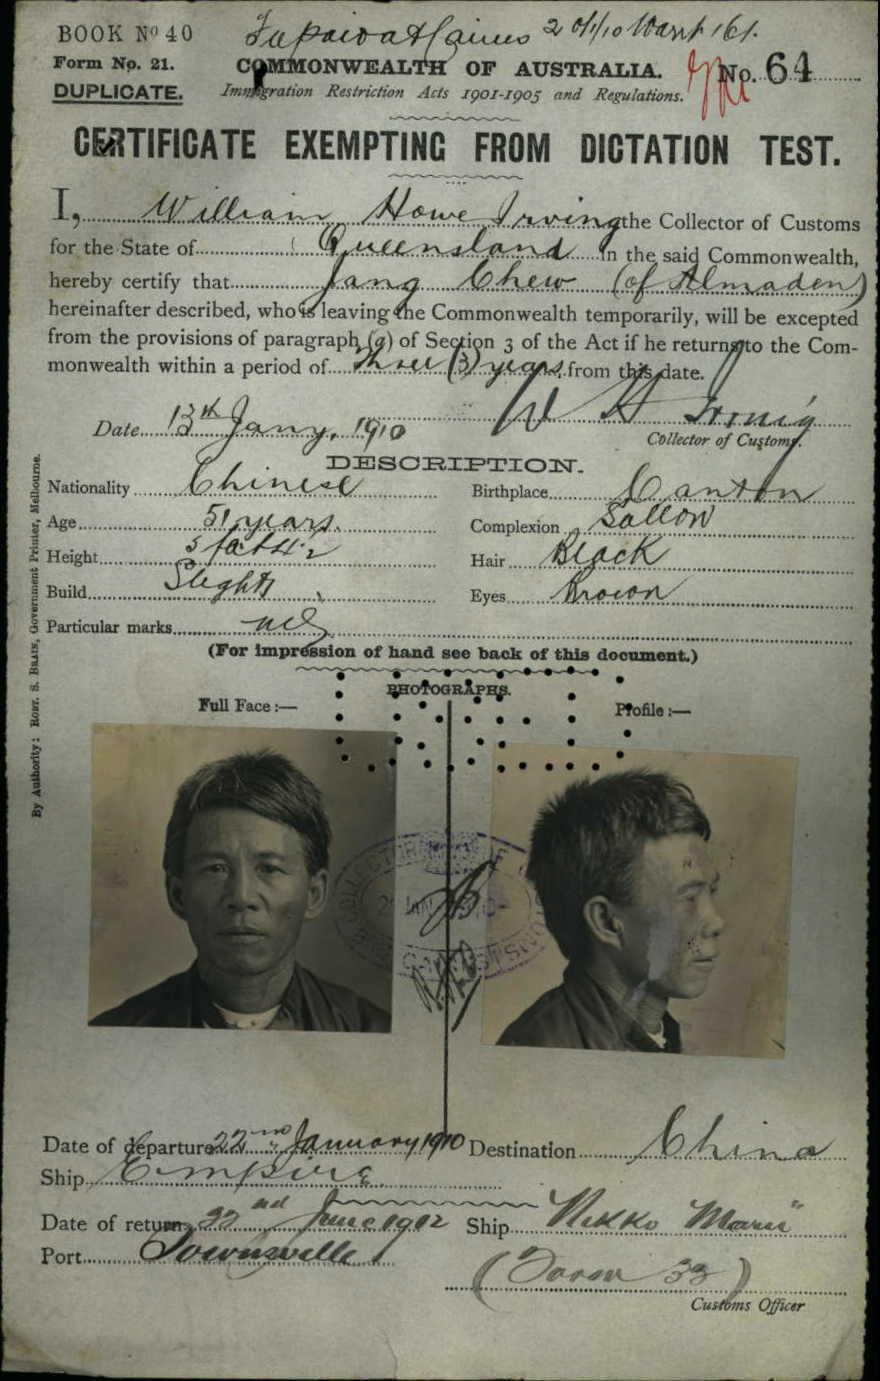 BOOK Nº 40
Form No. 21.
DUPLICATE.
COMMONWEALTH OF AUSTRALIA.
Immigration Restriction Acts 1901-1905 and Regulations.
No. 64
CERTIFICATE EXEMPTING FROM DICTATION TEST.
I, William Howe Irving the Collector of Customs
for the State of Queensland in the said Commonwealth,
hereby certify that Jang Chew (of Almaden)
hereinafter described, who is leaving the Commonwealth temporarily, will be excepted
from the provisions of paragraph (a) of Section 3 of the Act if he returns to the Com-
monwealth within a period of three (3) years from this date.
W H Irving
Date 13th Jany, 1910
Collector of Customs.
DESCRIPTION.
Nationality Chinese Birthplace Canton
Age 51 years. Complexion Sallow
Height 5 feet 4½ Hair Black
Build Slight Eyes Brown
Particular marks nil
(For impression of hand see back of this document.)
PHOTOGRAPHS.
Full Face :— Profile :—
By Authority: ROBT. S. BRAIN, Government Printer, Melbourne.
Date of departure 22nd January 1910 Destination China
Ship Empire
Date of return 22nd June 1912 Ship "Nikko Maru"
Port Townsville
(Form 32)
Customs Officer